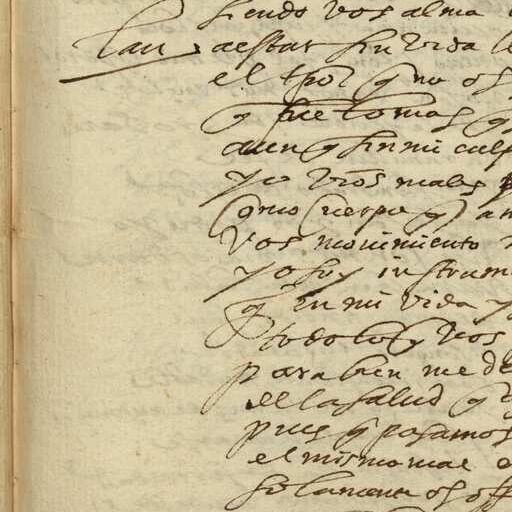 siendo vos alma
lau aestar sin vida
el tpo q no os
q fue tomas q
aun q sin mi culp
yo vros males
como cuerpo q
vos movimiento
yo soy instrum
q en mi vida y
todo lo q vos
para bien me de
el la salud q
pues q pasamos
el mismo mal
solamente os off